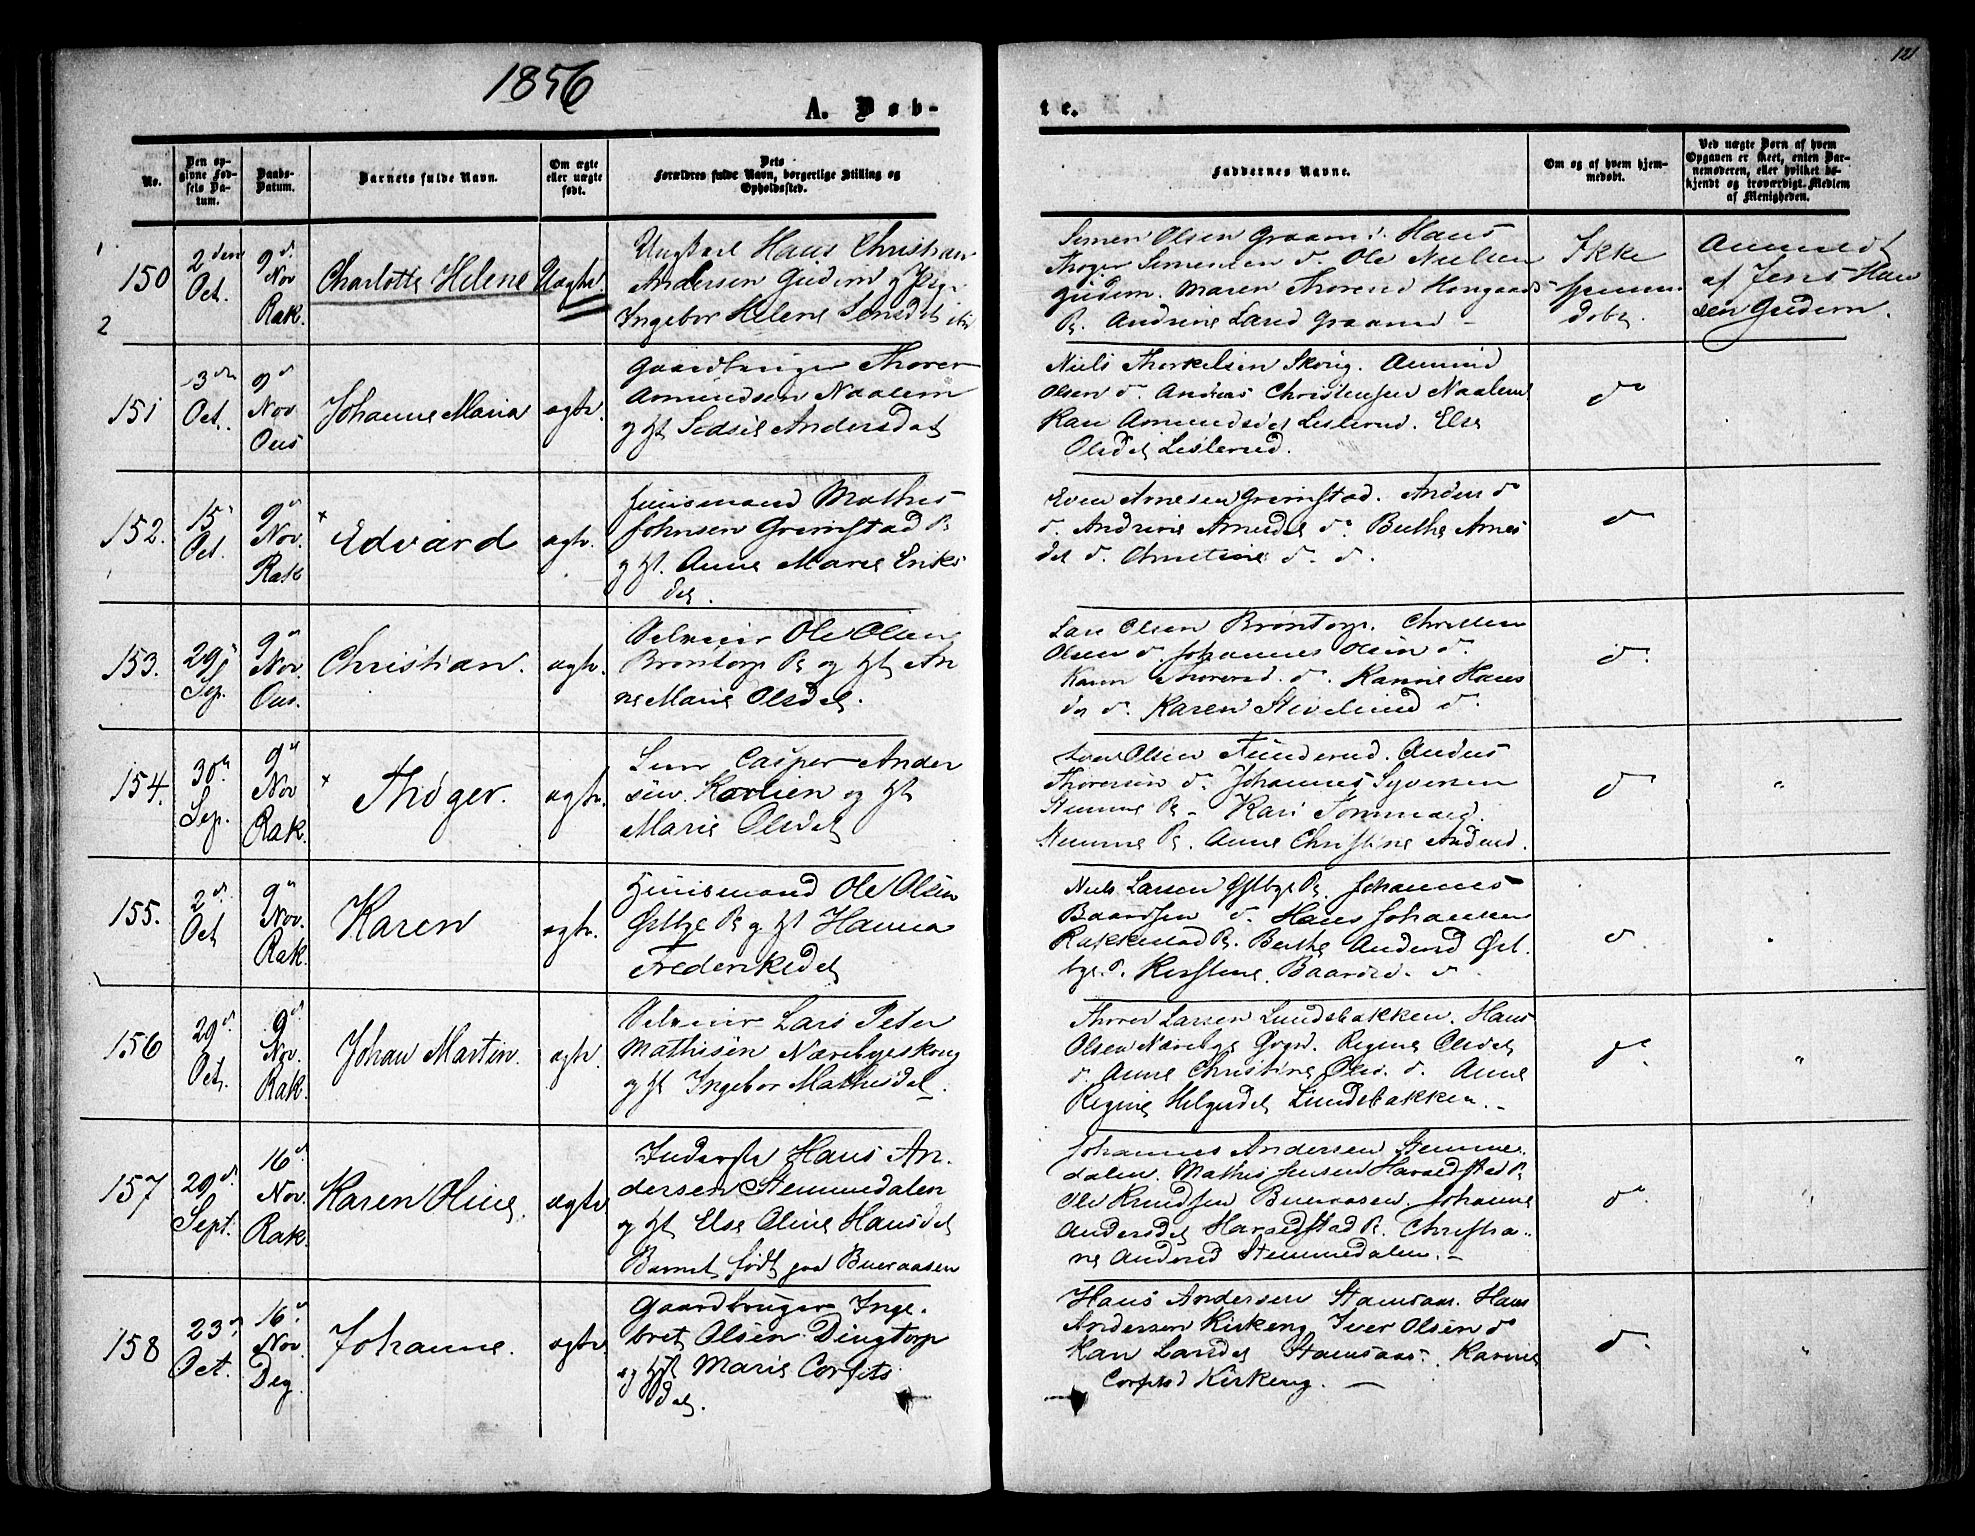 1856
121
A. Døb-
te.
No.
Den op-
givne Fød-
sels Da-
tum.
Daabs-
Datum.
Barnets fulde Navn.
Om ægte
eller uægte
født.
Dets
Forældres fulde Navn, borgerlige Stilling og
Opholdssted.
Faddernes Navne.
Om og af hvem hjem-
medøbt.
Ved uægte Børn af hvem
Opgaven er skeet, enten Bar-
nemoderen, eller hvilket be-
kjendt og troværdigt Medlem
af Menigheden.
150
2den
Oct.
9d
Nov
Rak.
Charlotte Helene
Uægte.
Ungkarl Hans Christian
Andersen Gudem og Pige
Ingebor Helene Jensdat
Simen Olsen Graarud. Hans
Thoger Simensen d. Ole Nielsen
Gudem. Maren Thorersd
Andrine Larsd Graarud
Ikke
hjemme
døbt.
Anmeldt
af Jens Han
sen Gudem.
151
3die
Oct.
9d
Nov
Ous
Johanne Maria
ægte.
Gaardbruger Thorer
Asmundsen Naalem
og Ht Sidsil Andersdat
Niels Thorkelsen Skorig. Asmund
Olsen d. Andreas Christensen Naalem
Kari Asmundsdat Lislerud. Else
Olsdat Lislerud.
do
152.
15
Oct.
9d
Nov.
Rak
Edvard
ægte.
Huusmand Mathis
Johnsen Grimstad R
og Ht. Anne Marie Eriks
dat.
Even Arnesen Grimstad. Anders do
d. Andrine Arnesdat do Berthe Arnes
dat d. Christine d. d.
do
153.
29
Sep.
9d
Nov.
Ous.
Christian.
ægte.
Selveier Ole Olsen
Brøntorp R og Ht An
ne Marie Olsdat.
Lars Olsen Brøntorp. Christian
Olsen d. Johannes Olsen d.
Karen Thorersd. d. Karine Hans
dat d. Karen d.
d.
154.
30
Sep.
9d
Nov
Rak.
Thøger.
ægte.
Casper Ander
sen. Kovlien og Ht
Marie Olsdat
Iver Olsen Tunderud. Anders
Thoresen d. Johannes Syversen
Stemme R. Kari
Stemme R. Anne Christine Andersd.
d
"
155.
2d
Oct
9d
Nov.
Rak.
Karen
ægte.
Huusmand Ole Olsen
Østbye R og Ht Hanna
Frederiksdat
Niels Larsen Østbye R. Johannes
Baardsen d. Hans Johansen
Rakkestad R. Berthe Andersd Øst
bye. d. Kirstine Baardsd. d
d.
156
29d
Oct.
9d
Nov.
Rak.
Johan Martin.
ægte.
Selveier Lars Peter
Mathisen Nærebyeskoug
og Ht Ingebor Mathisdat.
Thorer Larsen Lundebakken. Hans
Olsen Nærebye Regine Olsdat
d. Anne Christine Olsd. d. Anne
Regine Helgesdat Lundebakken.
do.
"
157
29d.
Sept.
16d
Nov.
Rak.
Karen Oline.
ægte
Inderste Hans An.
dersen Stemmedalen
og Ht Else Oline Hansdat
Barnet født paa Bueraasen
Johannes Andersen Stemme-
dalen. Mathis Jensen Haraldstad R
Ole Knudsen Bueraasen. Johanne
Andersdat Haraldstad R. Christia-
ne Andersd Stemmedalen.
do
"
158
23d
Oct.
16d
Nov.
Deg.
Johanne.
ægte
Gaardbruger Inge-
bret Olsen Dingtorp
og Ht Marie Corfits
dat.
Hans Andersen Stamsaas. Hans
Andersen Kirkeng Iver Olsen do
Kari Larsdat Stamsaas. Karine
Corfitsd Kirkeng.
d.
"